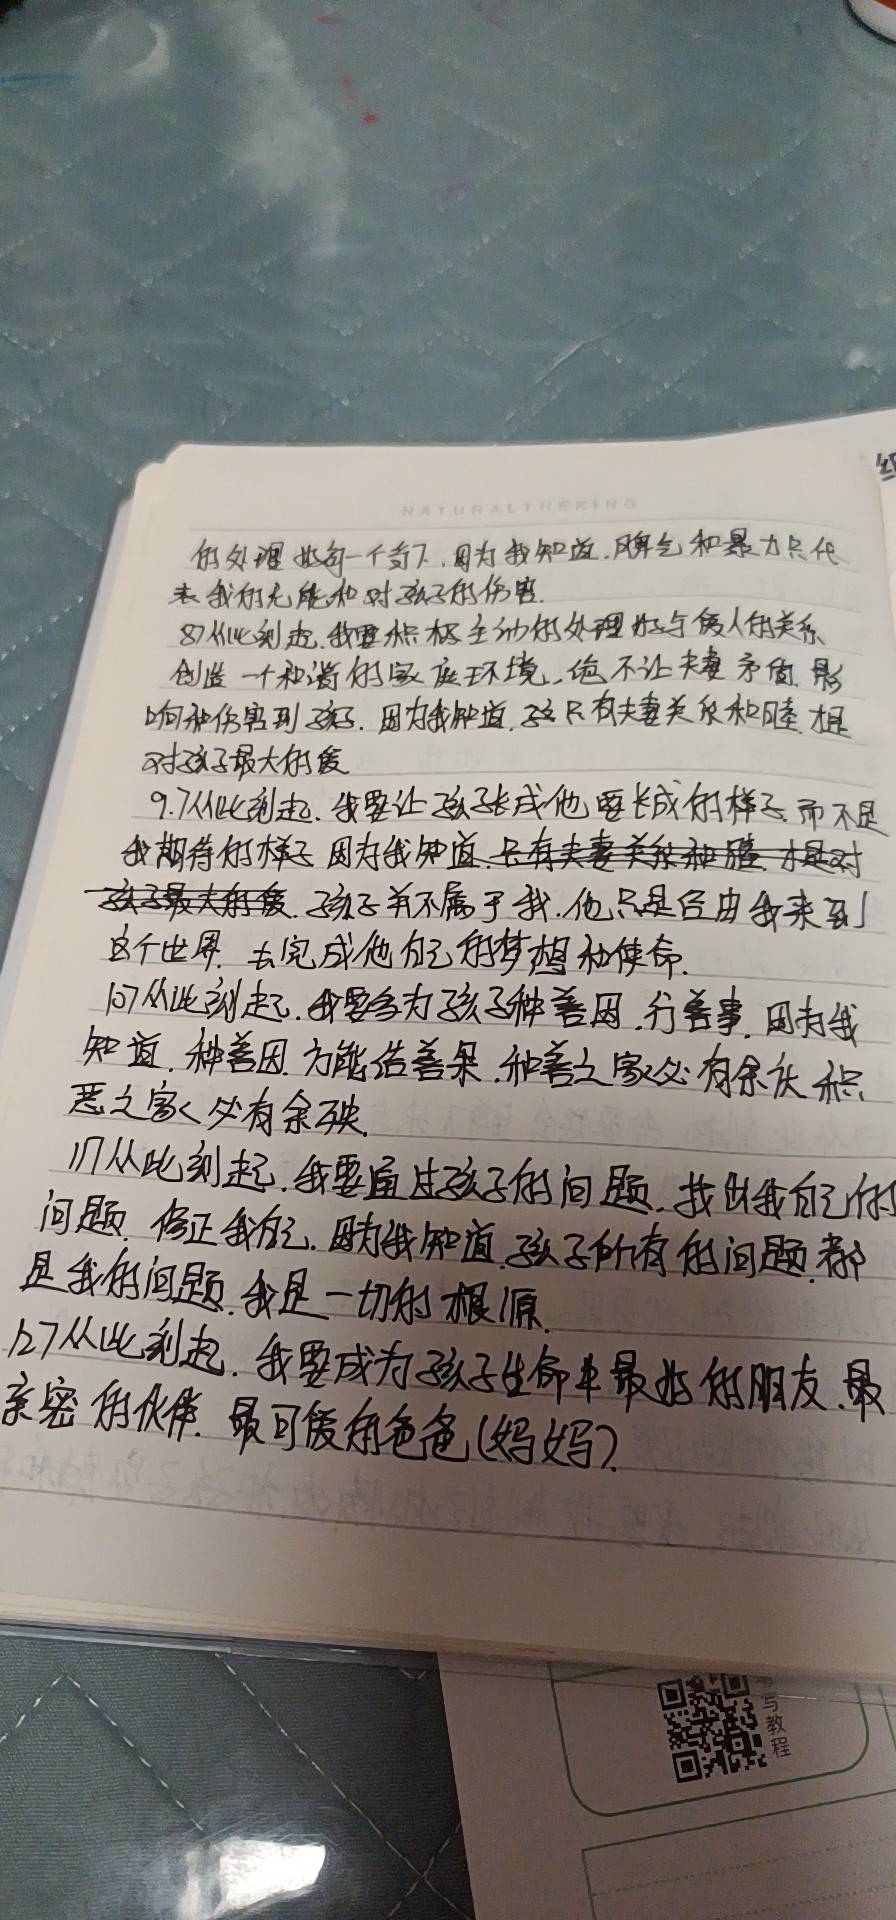 NATURALTHEKING
的处理好每一个当下,因为我知道,脾气和暴力只代
表我的无能和对孩子的伤害.
87从此刻起,我要积极主动的处理好与爱人的关系
创造一个和谐的家庭环境,绝不让夫妻矛盾,影
响和伤害到孩子.因为我知道,只有夫妻关系和睦,才是
对孩子最大的爱
9.7从此刻起.我要让孩子长成他要长成的样子,而不是
我期待的样子 因为我知道,只有夫妻关系和睦,才是对
孩子最大的爱.孩子并不属于我.他只是经由我来到
这个世界,去完成他自己的梦想和使命.
107从此刻起,我要多为孩子种善因,行善事,因为我
知道,种善因,方能结善果.和善之家必有余庆 积
恶之家必有余殃.
117从此刻起.我要通过孩子的问题,找出我自己的
问题,修正我自己,因为我知道,孩子所有的问题,都
是我的问题,我是一切的根源.
127从此刻起,我要成为孩子生命中最好的朋友.最
亲密的伙伴.最可爱的爸爸(妈妈).
写教程